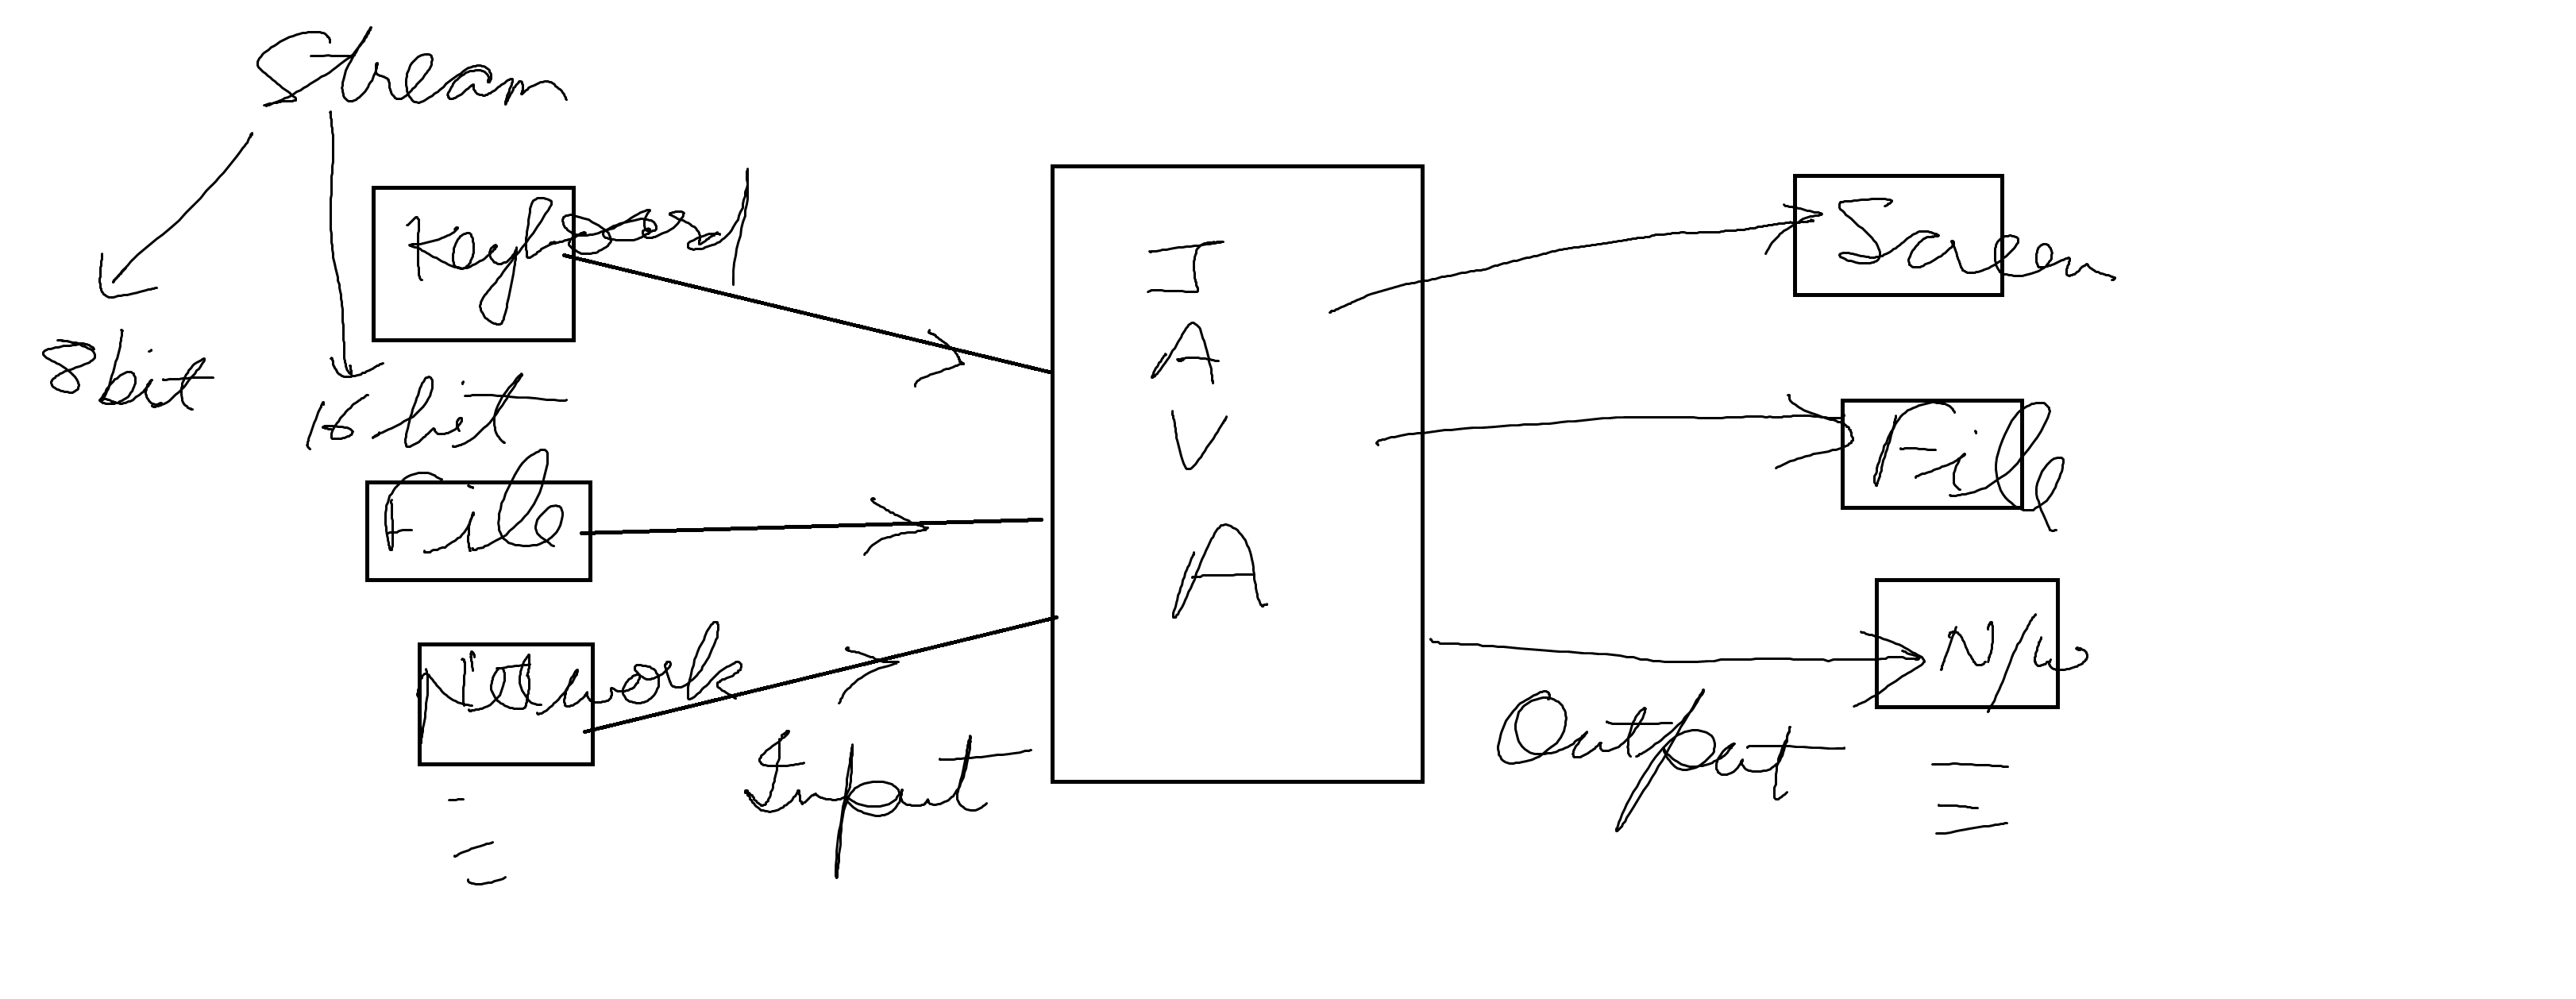 Stream
8 bit
16 bit
Keyboard
File
Network
Input
J
A
V
A
Screen
File
N/w
Output